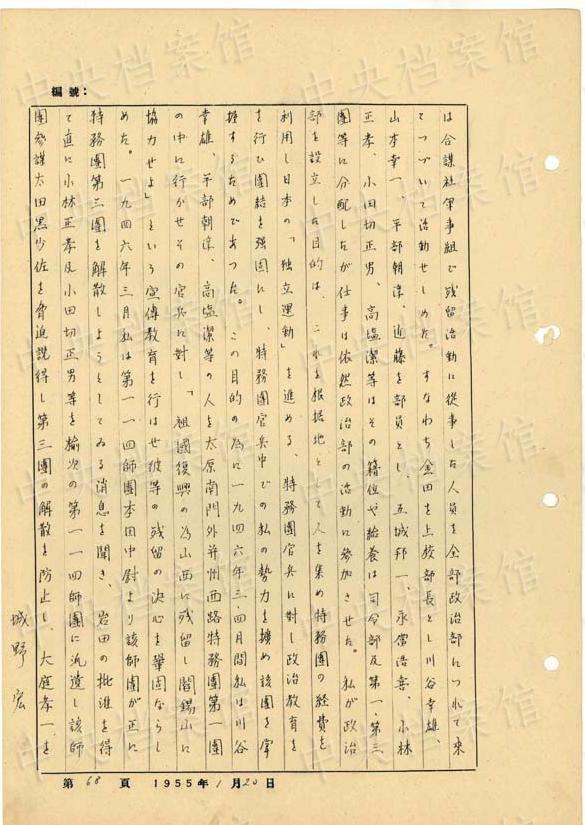 編號：
は合謀社軍事組で残留活動に從事した人員を全部政治部につれて来
てつづいて活動せしめた。すなわち金田を上校部長とし川谷幸雄、
山本幸一、平部朝淳、近藤を部員とし、五城邦一、永富浩喜、小林
正孝、小田切正男、高塩潔等はその籍位や給養は司令部及第一第三
團等に分配したが仕事は依然政治部の活動に参加させた。私が政治
部を設立した目的は、これを根據地として人を集め特務團の経費を
利用し日本の「独立運動」を進める、特務團官兵に対し政治教育を
を行ひ團結を强固にし、特務團官兵中での私の勢力を擴め該團を掌
握するためであつた。この目的の為に一九四六年三、四月間私は川谷
幸雄、平部朝淳、高塩潔等の人を太原南門外并州西路特務團第一團
の中に行かせその官兵に対し「祖國復興の為山西に残留し閻錫山に
協力せよ」といろ宣傳教育を行はせ彼等の残留の決心を鞏固ならし
めた。一九四六年三月私は第一一四師團本田中尉より該師團が正に
特務團第三團を解散しようとしてゐる消息を聞き、岩田の批准を得
て直に小林正孝及小田切正男等を榆次の第一一四師團に派遣し該師
團参謀太田黒少佐を脅迫説得し第三團の解散を防止し、大庭孝一を
城野宏
第 68 頁 1955年 1月20日
中央档案馆